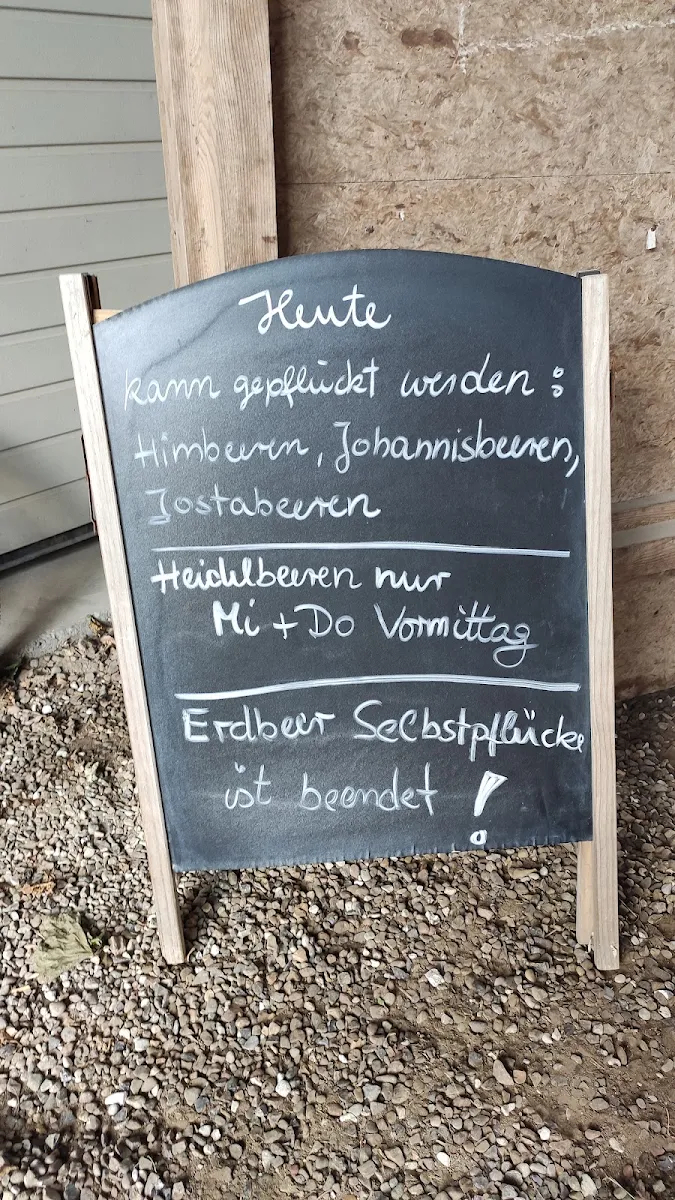 Heute
kann gepflückt werden :
Himbeeren, Johannisbeeren,
Jostabeeren
Heidelbeeren nur
Mi + Do Vormittag
Erdbeer Selbstpflücke
ist beendet !